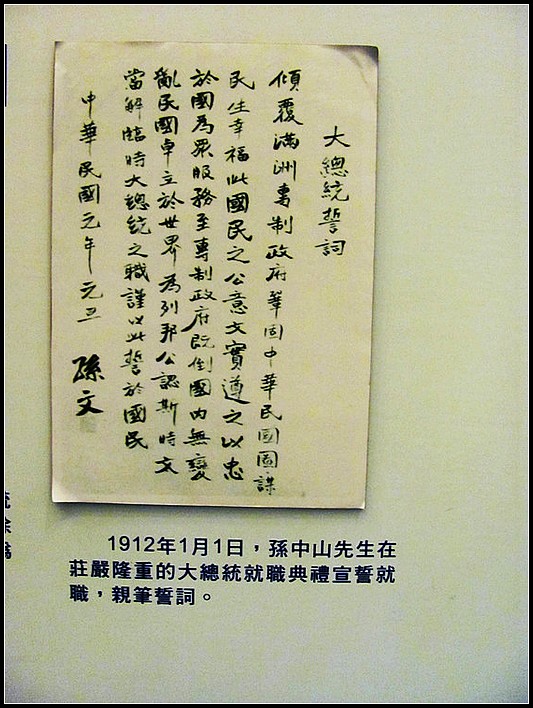 大總統誓詞
傾覆滿洲專制政府鞏固中華民國圖謀
民生幸福此國民之公意文實遵之以忠
於國為眾服務至專制政府既倒國內無變
亂民國卓立於世界為列邦公認斯時文
當解臨時大總統之職謹以此誓於國民
中華民國元年元旦 孫文
1912年1月1日，孫中山先生在
莊嚴隆重的大總統就職典禮宣誓就
職，親筆誓詞。